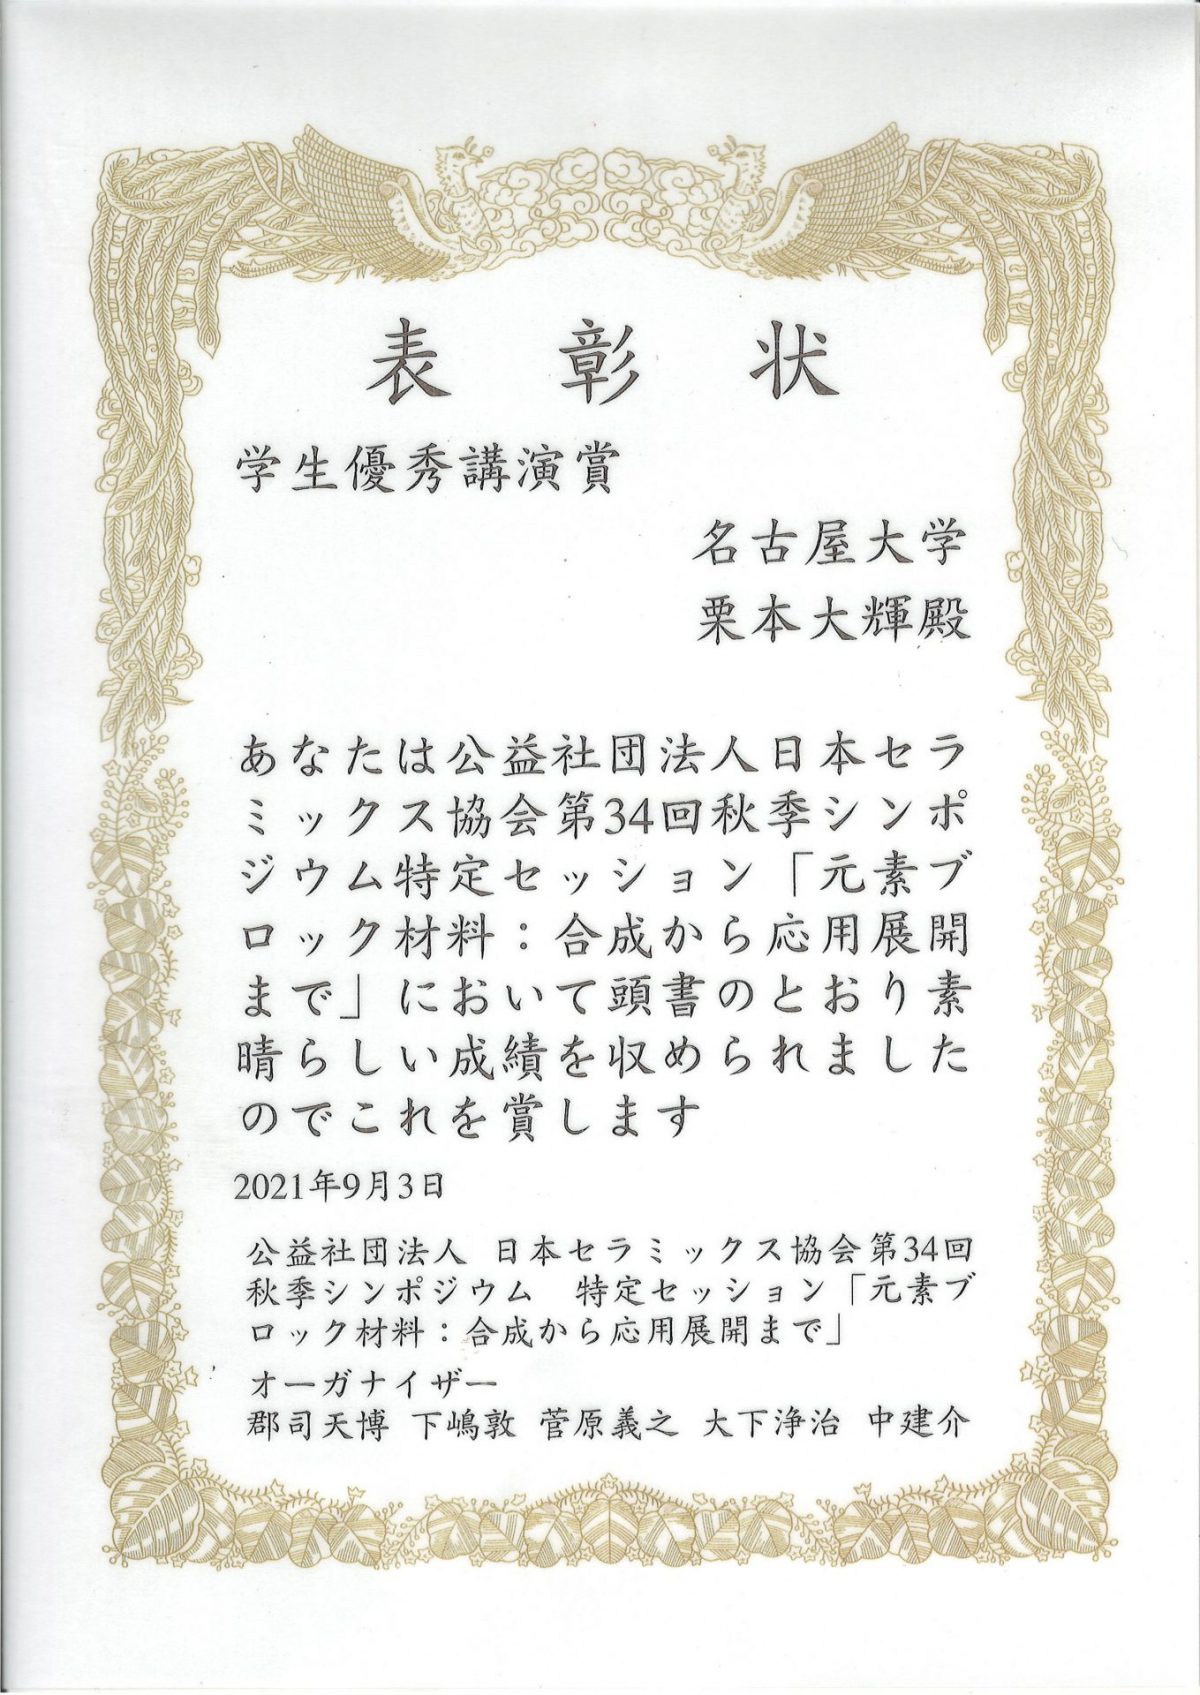 表彰状
学生優秀講演賞
名古屋大学
栗本大輝殿
あなたは公益社団法人日本セラ
ミックス協会第34回秋季シンポ
ジウム特定セッション「元素ブ
ロック材料：合成から応用展開
まで」において頭書のとおり素
晴らしい成績を収められました
のでこれを賞します
2021年9月3日
公益社団法人 日本セラミックス協会第34回
秋季シンポジウム　特定セッション「元素ブ
ロック材料：合成から応用展開まで」
オーガナイザー
郡司天博 下嶋敦 菅原義之 大下浄治 中建介